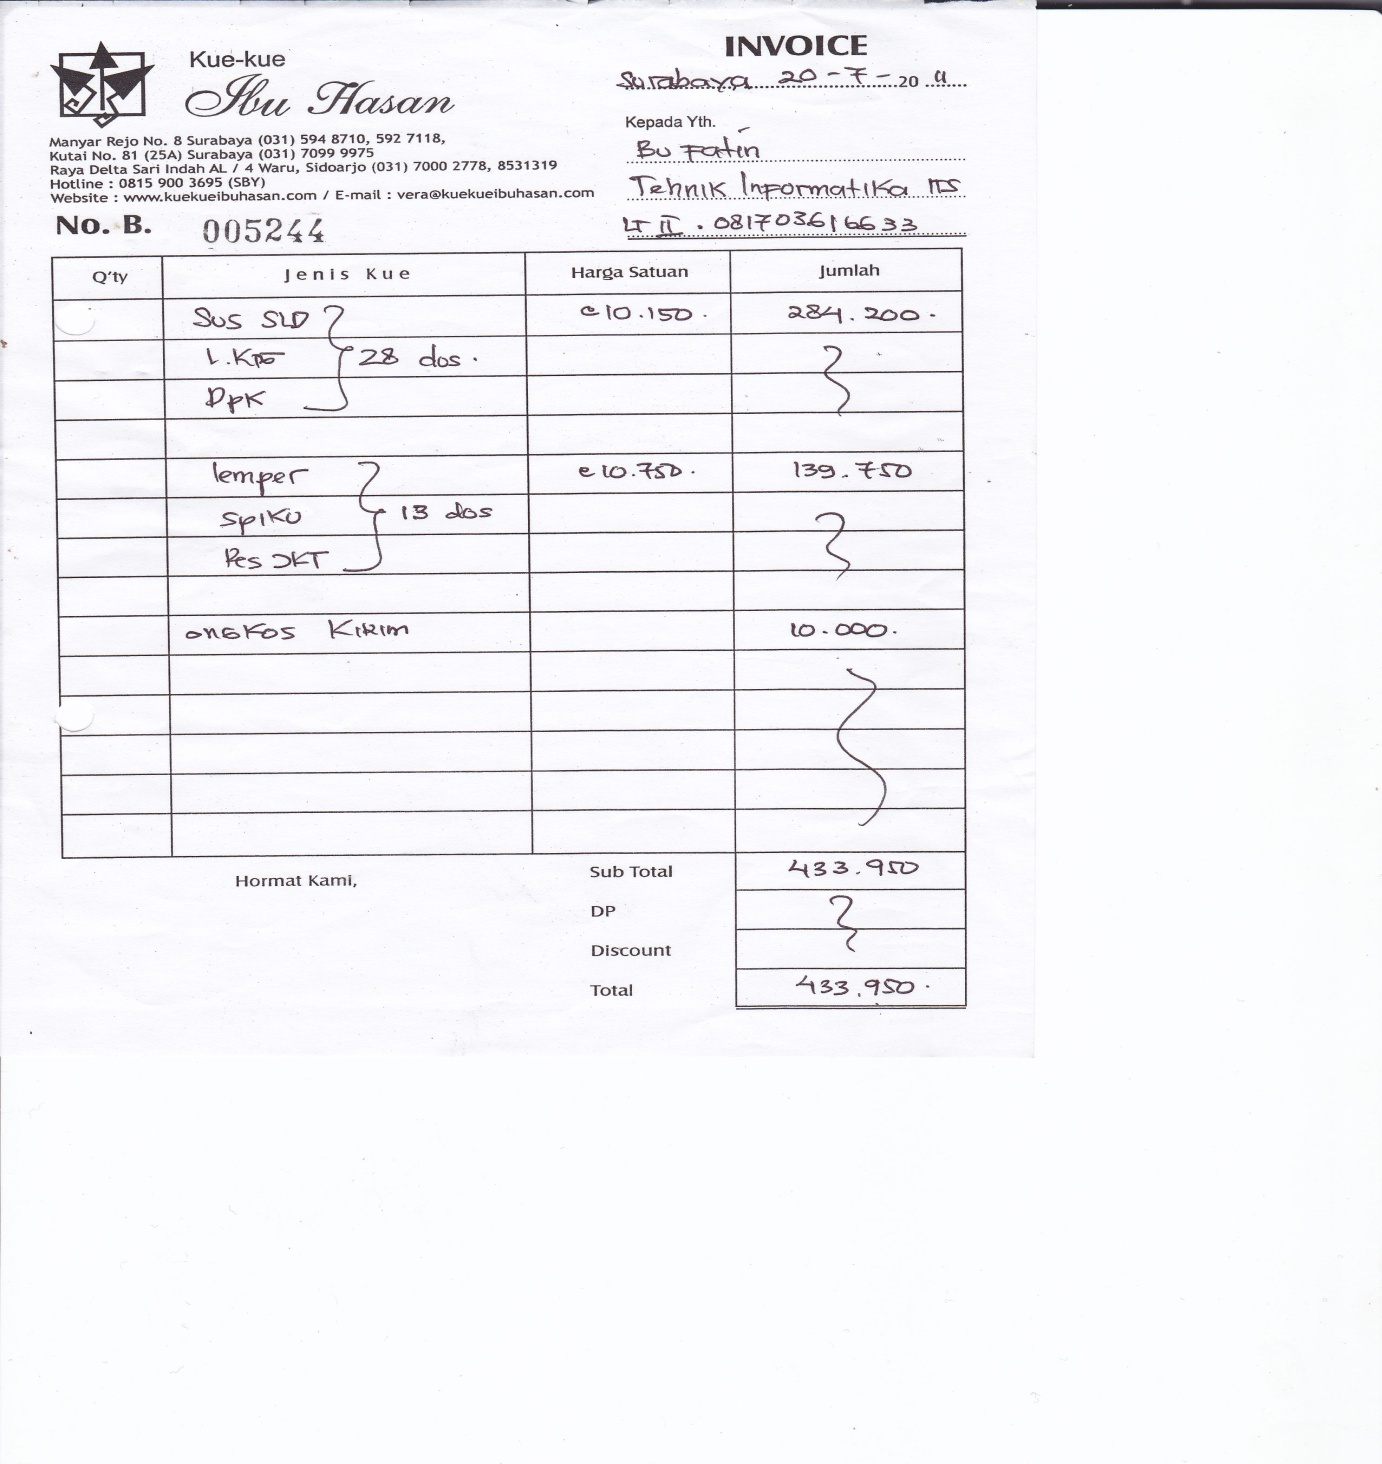 Kue-kue
Ibu Hasan
Manyar Rejo No. 8 Surabaya (031) 594 8710, 592 7118,
Kutai No. 81 (25A) Surabaya (031) 7099 9975
Raya Delta Sari Indah AL / 4 Waru, Sidoarjo (031) 7000 2778, 8531319
Hotline : 0815 900 3695 (SBY)
Website : www.kuekueibuhasan.com / E-mail : vera@kuekueibuhasan.com
No. B. 005244
INVOICE
Surabaya 20-7-20 11
Kepada Yth.
Bu Fatin
Tehnik Informatika ITS
LT II . 081703616633
Q'ty Jenis Kue Harga Satuan Jumlah
Sus SLD @10.150. 284.200.
28 dos.
DPK
lemper @10.750. 139.750
spiku 13 dos
Pes JKT
ongkos Kirim 10.000.
Sub Total 433.950
Hormat Kami,
DP
Discount
Total 433.950.